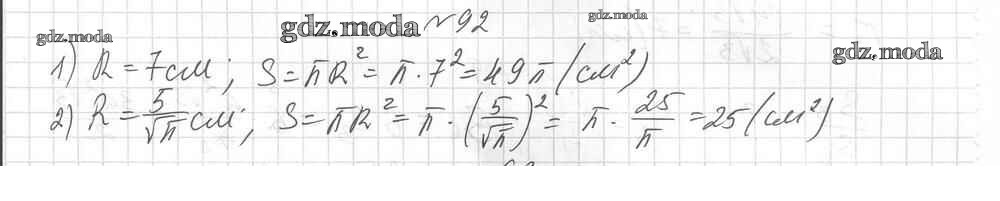 №92
gdz.moda
gdz.moda
gdz.moda
gdz.moda
1) R = 7 см; S = πR² = π · 7² = 49π (см²)
2) R = 5/√π см; S = πR² = π · (5/√π)² = π · 25/π = 25 (см²)